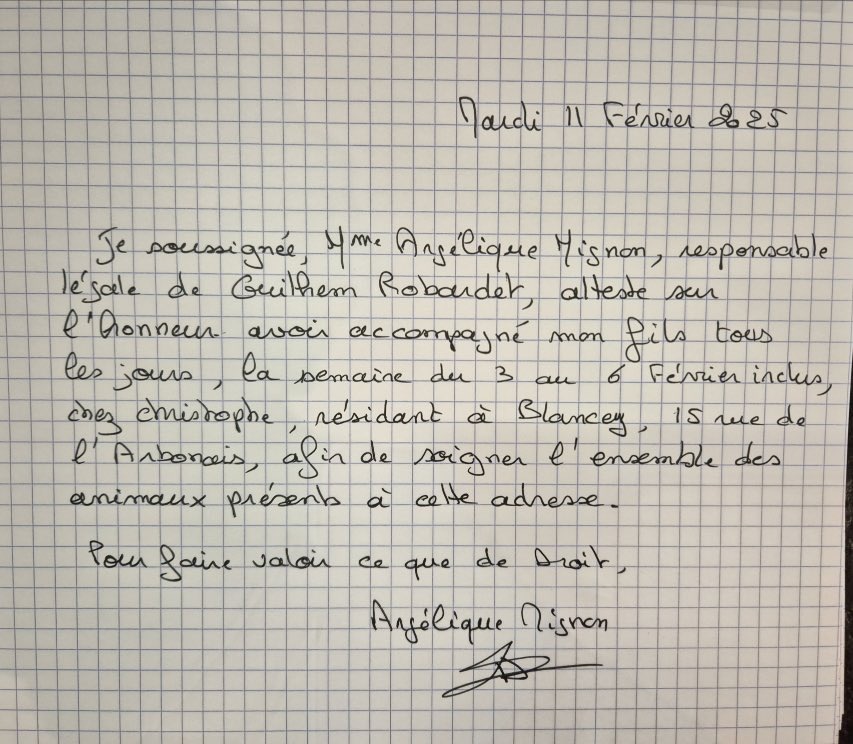 Mardi 11 Février 2025
Je soussignée, Mme Angélique Mignon, responsable
légale de Guilhem Robardet, atteste sur
l'honneur avoir accompagné mon fils tous
les jours, la semaine du 3 au 6 Février inclus,
chez christophe, résidant à Blancey, 15 rue de
l'Arbonais, afin de soigner l'ensemble des
animaux présents à cette adresse.
Pour faire valoir ce que de Droit,
Angélique Mignon